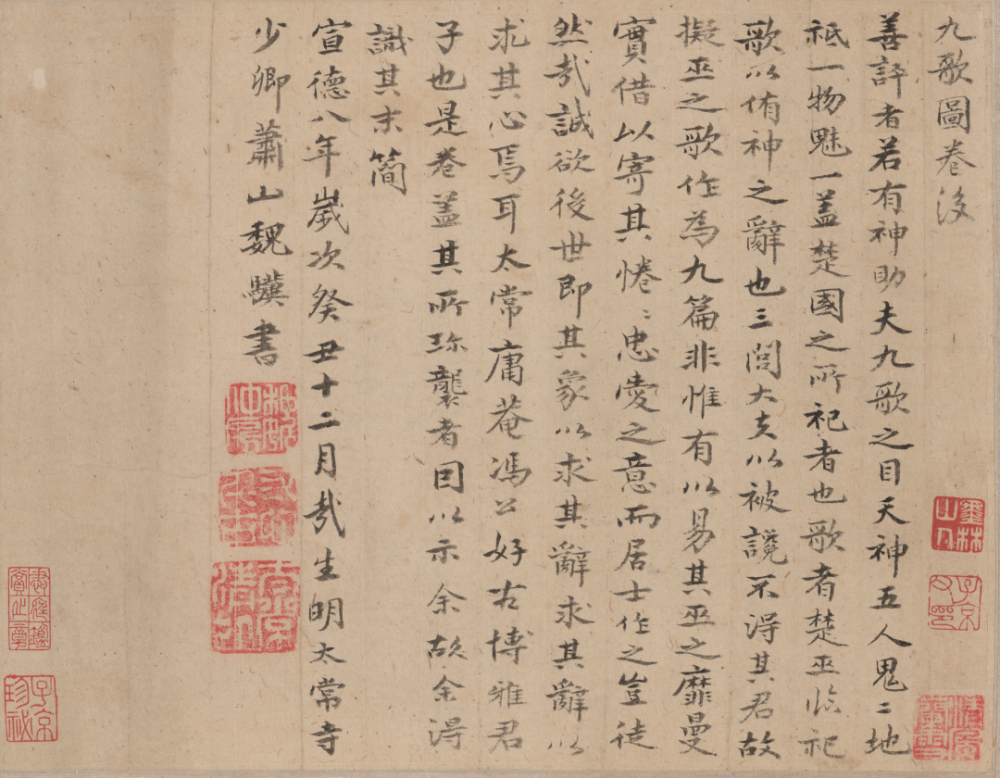 九歌圖卷後
善評者若有神助夫九歌之目天神五人鬼二地
祇一物魅一蓋楚國之所祀者也歌者楚巫臨祀
歌以侑神之辭也三閭大夫以被讒不得其君故
擬巫之歌作為九篇非惟有以易其巫之靡曼
實借以寄其惓〻忠愛之意而居士作之豈徒
然哉誠欲後世即其象以求其辭求其辭以
求其心焉耳太常庸菴馮公好古博雅君
子也是卷蓋其所珍襲者因以示余故余得
識其末簡
宣德八年歲次癸丑十二月哉生明太常寺
少卿蕭山魏驥書
墨林山人
子京父印
子京珍秘